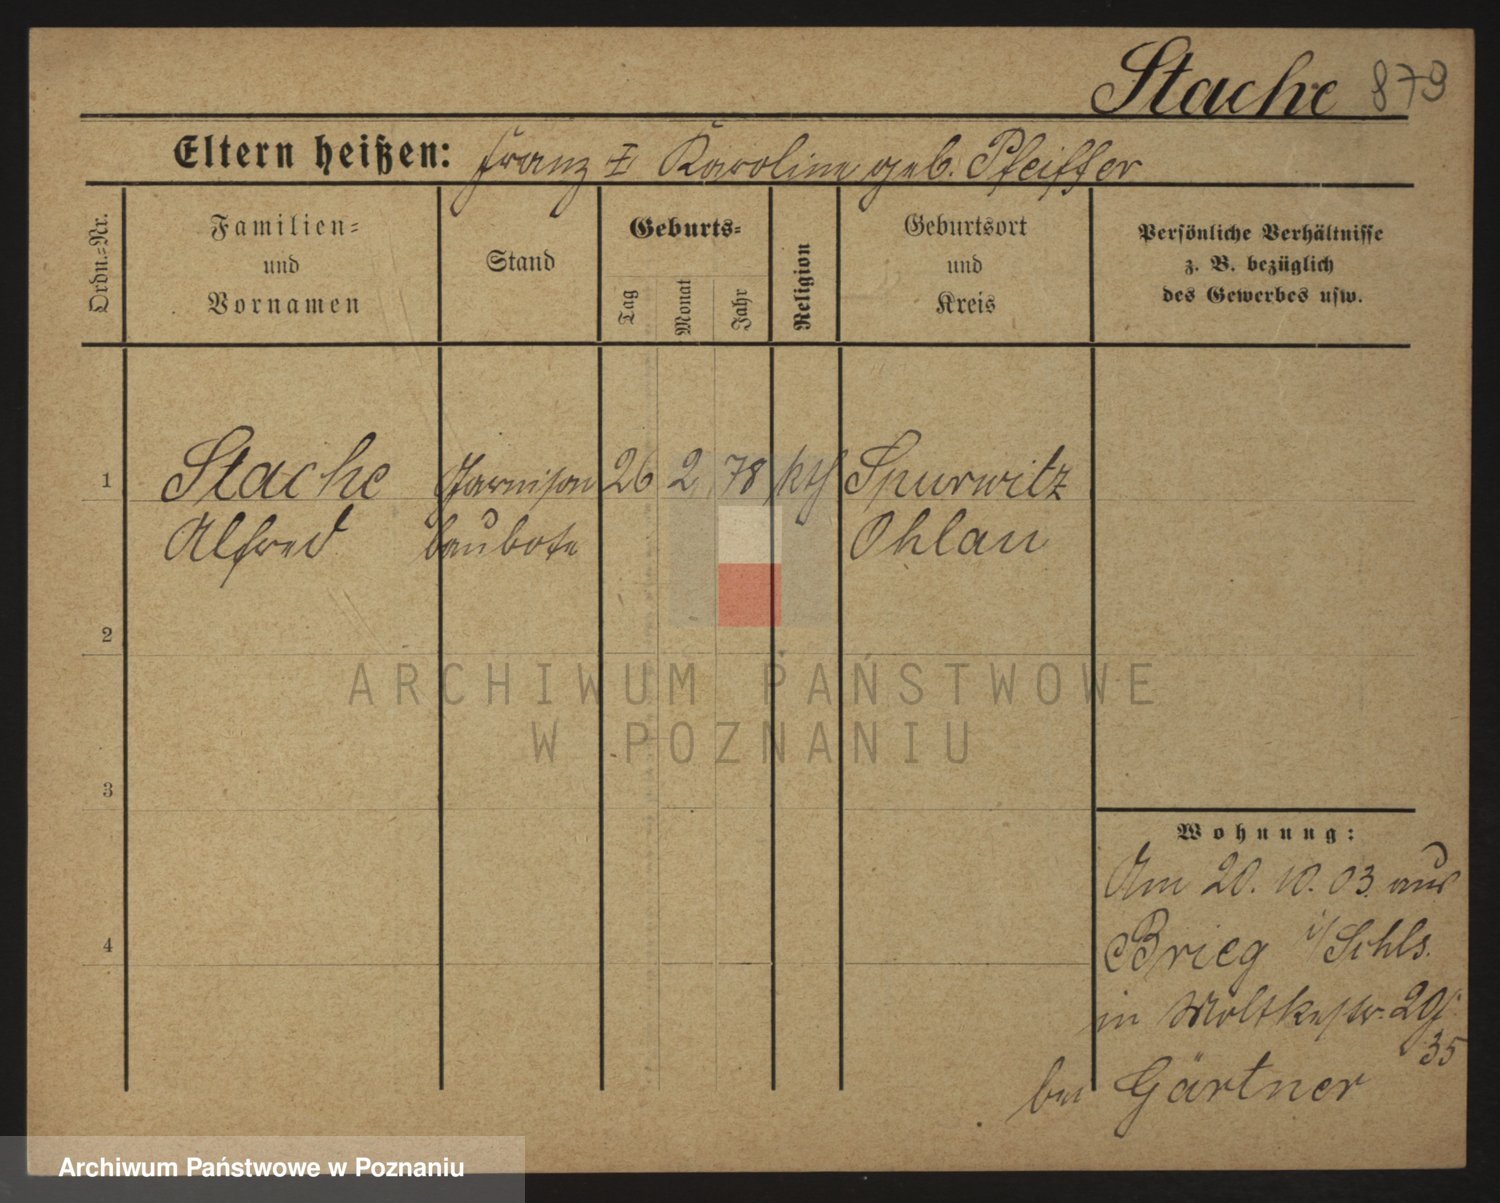 Stache 879
Eltern heißen: Franz & Karoline geb. Pfeiffer
Ordn.-Nr.
Familien-
und
Vornamen
Stand
Geburts-
Tag
Monat
Jahr
Religion
Geburtsort
und
Kreis
Persönliche Verhältnisse
z. B. bezüglich
des Gewerbes usw.
1 Stache Garnison 26 2 78 kth Spurwitz
Alfred baubote Ohlau
2
3
4
Wohnung:
Am 20. 10. 03. aus
Brieg i/Schls.
in Moltkestr.
35
bei Gärtner
ARCHIWUM PAŃSTWOWE
W POZNANIU
Archiwum Państwowe w Poznaniu